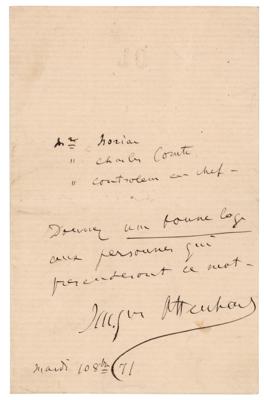 Mrs Noriac
" Charles Comte
" controleur en chef -
Donnez une bonne loge
aux personnes qui
presenteront ce mot -
Jacques Offenbach
mardi 10 8bre 71